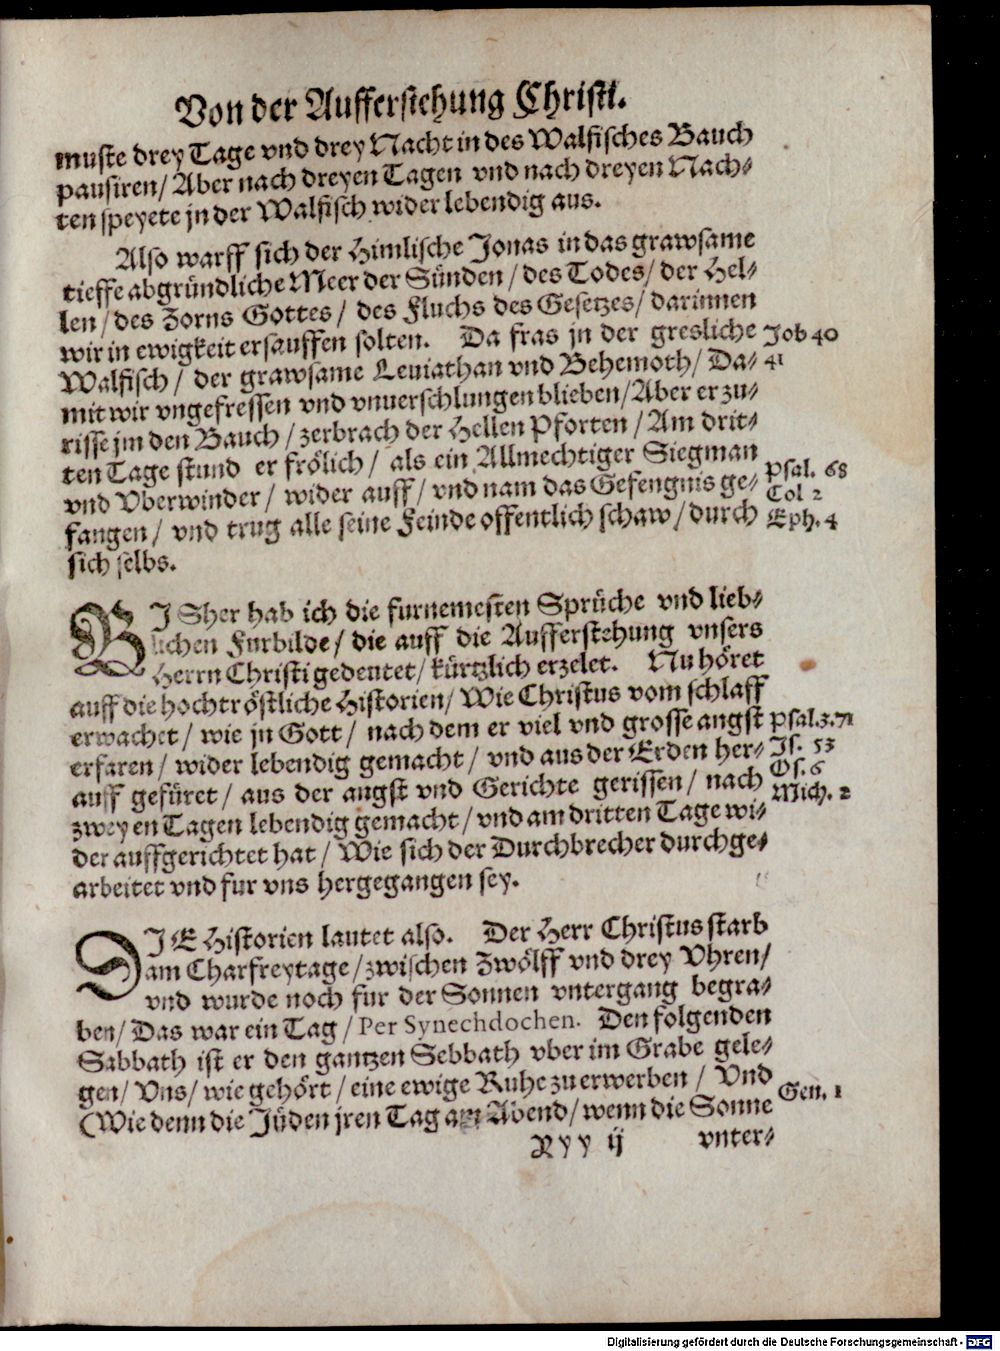 Von der Aufferstehung Christi.
muste drey Tage vnd drey Nacht in des Walfisches Bauch
pausiren/ Aber nach dreyen Tagen vnd nach dreyen Nach-
ten speyete jn der Walfisch wider lebendig aus.
Also warff sich der Himlische Jonas in das grawsame
tieffe abgründliche Meer der Sünden/ des Todes/ der Hel-
len/ des Zorns Gottes/ des Fluchs des Gesetzes/ darinnen
wir in ewigkeit ersauffen solten. Da fras jn der gresliche Job 40
Walfisch/ der grawsame Leuiathan vnd Behemoth/ Da- 41
mit wir vngefressen vnd vnuerschlungen blieben/ Aber er zu-
risse jm den Bauch/ zerbrach der Hellen Pforten/ Am drit-
ten Tage stund er frölich/ als ein Allmechtiger Siegman Psal. 68
vnd Vberwinder/ wider auff/ vnd nam das Gefengnis ge- Col 2
fangen/ vnd trug alle seine Feinde offentlich schaw/ durch Eph. 4
sich selbs.
BISher hab ich die furnemesten Sprüche vnd lieb-
lichen Furbilde/ die auff die Aufferstehung vnsers
Herrn Christi gedeutet/ kürtzlich erzelet. Nu höret
auff die hochtröstliche Historien/ Wie Christus vom schlaff
erwachet/ wie jn Gott/ nach dem er viel vnd grosse angst Psal.3.71
erfaren/ wider lebendig gemacht/ vnd aus der Erden her- Js. 53
auff gefüret/ aus der angst vnd Gerichte gerissen/ nach Os. 6
zweyen Tagen lebendig gemacht/ vnd am dritten Tage wi- Mich. 2
der auffgerichtet hat/ Wie sich der Durchbrecher durchge-
arbeitet vnd fur vns hergegangen sey.
DIE Historien lautet also. Der Herr Christus starb
am Charfreytage/ zwischen Zwölff vnd drey Vhren/
vnd wurde noch fur der Sonnen vntergang begra-
ben/ Das war ein Tag/ Per Synechdochen. Den folgenden
Sabbath ist er den gantzen Sebbath vber im Grabe gele-
gen/ Vns/ wie gehört/ eine ewige Ruhe zu erwerben/ Vnd Gen. 1
(Wie denn die Jüden jren Tag am Abend/ wenn die Sonne
Ryy ij vnter-
Digitalisierung gefördert durch die Deutsche Forschungsgemeinschaft - DFG